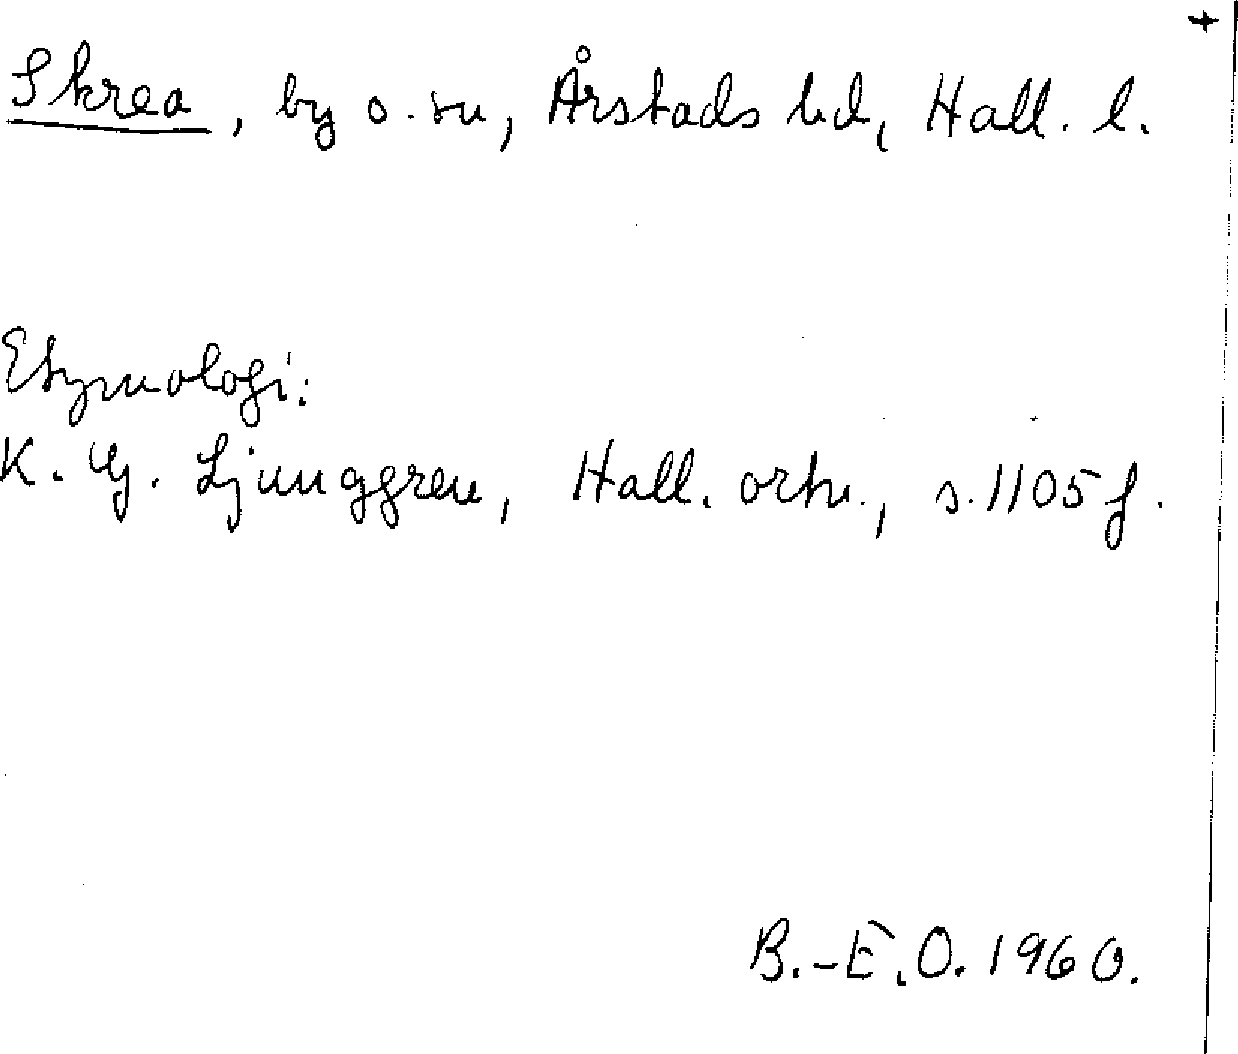 +
Skrea, by o. sn, Årstads hd, Hall. l.
Etymologi:
K. G. Ljunggren, Hall. ortn., s. 1105 f.
B.-E. O. 1960.